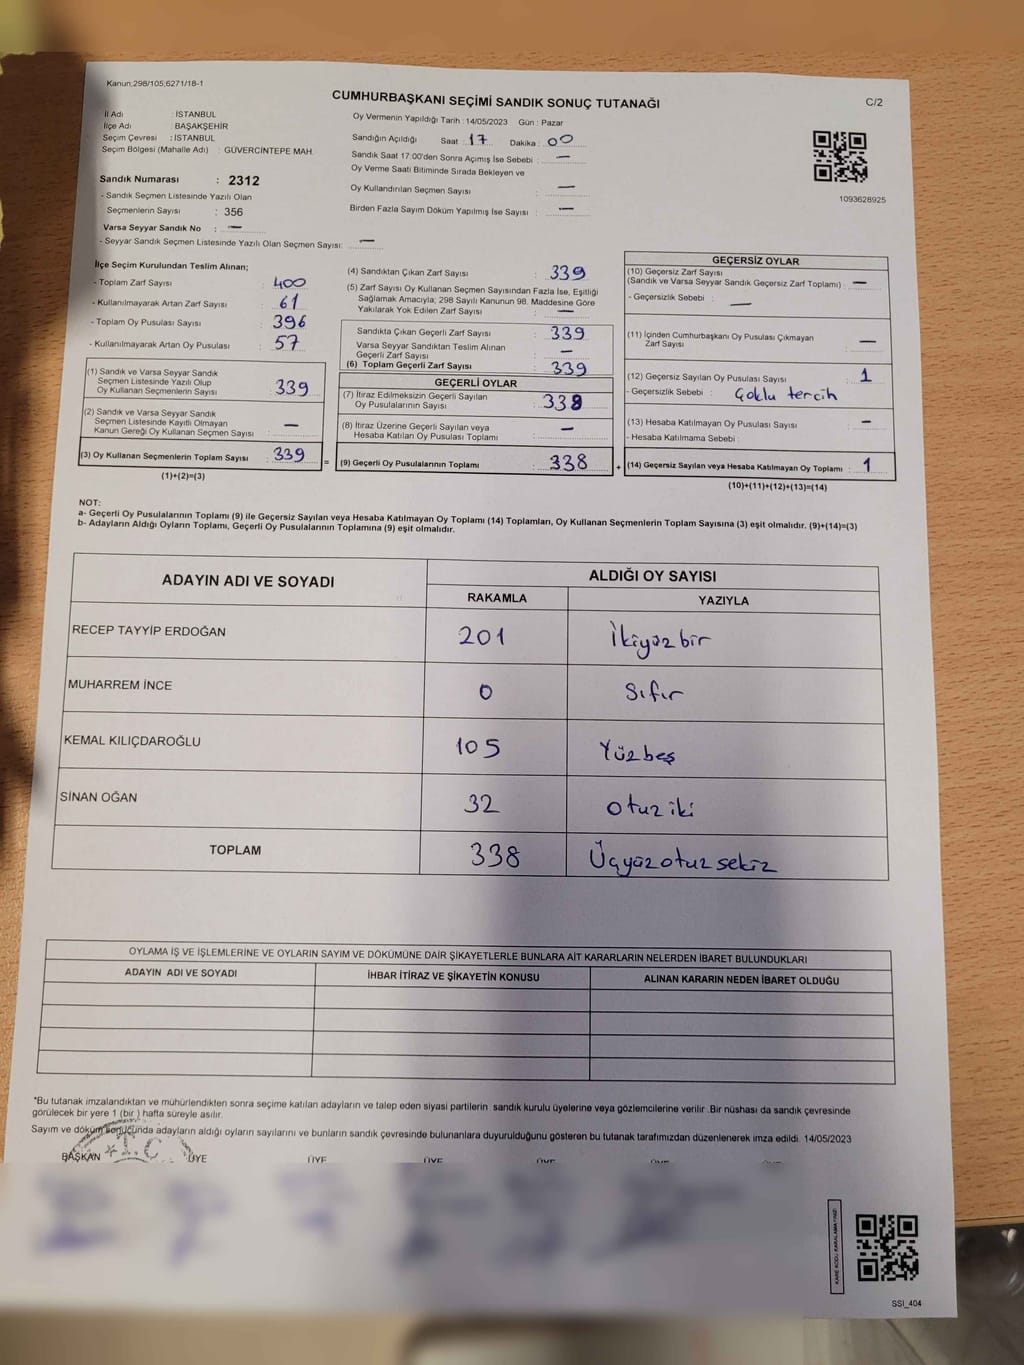 Kanun;298/105;6271/18-1
CUMHURBAŞKANI SEÇİMİ SANDIK SONUÇ TUTANAĞI
C/2
İl Adı : İSTANBUL
İlçe Adı : BAŞAKŞEHİR
Seçim Çevresi : İSTANBUL
Seçim Bölgesi (Mahalle Adı) : GÜVERCİNTEPE MAH.
Oy Vermenin Yapıldığı Tarih : 14/05/2023 Gün : Pazar
Sandığın Açıldığı Saat : 17 Dakika : 00
Sandık Saat 17:00'den Sonra Açımış İse Sebebi : —
Oy Verme Saati Bitiminde Sırada Bekleyen ve
Oy Kullandırılan Seçmen Sayısı : —
Birden Fazla Sayım Döküm Yapılmış İse Sayısı : —
1093628925
Sandık Numarası : 2312
- Sandık Seçmen Listesinde Yazılı Olan
Seçmenlerin Sayısı : 356
Varsa Seyyar Sandık No : —
- Seyyar Sandık Seçmen Listesinde Yazılı Olan Seçmen Sayısı: —
İlçe Seçim Kurulundan Teslim Alınan;
- Toplam Zarf Sayısı : 400
- Kullanılmayarak Artan Zarf Sayısı : 61
- Toplam Oy Pusulası Sayısı : 396
- Kullanılmayarak Artan Oy Pusulası : 57
(1) Sandık ve Varsa Seyyar Sandık
Seçmen Listesinde Yazılı Olup
Oy Kullanan Seçmenlerin Sayısı : 339
(2) Sandık ve Varsa Seyyar Sandık
Seçmen Listesinde Kayıtlı Olmayan
Kanun Gereği Oy Kullanan Seçmen Sayısı : —
(3) Oy Kullanan Seçmenlerin Toplam Sayısı : 339
(1)+(2)=(3)
(4) Sandıktan Çıkan Zarf Sayısı : 339
(5) Zarf Sayısı Oy Kullanan Seçmen Sayısından Fazla İse, Eşitliği
Sağlamak Amacıyla; 298 Sayılı Kanunun 98. Maddesine Göre
Yakılarak Yok Edilen Zarf Sayısı : —
Sandıkta Çıkan Geçerli Zarf Sayısı : 339
Varsa Seyyar Sandıktan Teslim Alınan
Geçerli Zarf Sayısı : —
(6) Toplam Geçerli Zarf Sayısı : 339
GEÇERLİ OYLAR
(7) İtiraz Edilmeksizin Geçerli Sayılan
Oy Pusulalarının Sayısı : 338
(8) İtiraz Üzerine Geçerli Sayılan veya
Hesaba Katılan Oy Pusulası Toplamı : —
= (9) Geçerli Oy Pusulalarının Toplamı : 338
GEÇERSİZ OYLAR
(10) Geçersiz Zarf Sayısı
(Sandık ve Varsa Seyyar Sandık Geçersiz Zarf Toplamı) : —
- Geçersizlik Sebebi : —
(11) İçinden Cumhurbaşkanı Oy Pusulası Çıkmayan
Zarf Sayısı : —
(12) Geçersiz Sayılan Oy Pusulası Sayısı : 1
- Geçersizlik Sebebi : Çoklu tercih
(13) Hesaba Katılmayan Oy Pusulası Sayısı : —
- Hesaba Katılmama Sebebi :
+ (14) Geçersiz Sayılan veya Hesaba Katılmayan Oy Toplamı : 1
(10)+(11)+(12)+(13)=(14)
NOT:
a- Geçerli Oy Pusulalarının Toplamı (9) ile Geçersiz Sayılan veya Hesaba Katılmayan Oy Toplamı (14) Toplamları, Oy Kullanan Seçmenlerin Toplam Sayısına (3) eşit olmalıdır. (9)+(14)=(3)
b- Adayların Aldığı Oyların Toplamı, Geçerli Oy Pusulalarının Toplamına (9) eşit olmalıdır.
ADAYIN ADI VE SOYADI ALDIĞI OY SAYISI
RAKAMLA YAZIYLA
RECEP TAYYİP ERDOĞAN 201 İkiyüzbir
MUHARREM İNCE 0 Sıfır
KEMAL KILIÇDAROĞLU 105 Yüzbeş
SİNAN OĞAN 32 otuziki
TOPLAM 338 Üçyüzotuzsekiz
OYLAMA İŞ VE İŞLEMLERİNE VE OYLARIN SAYIM VE DÖKÜMÜNE DAİR ŞİKAYETLERLE BUNLARA AİT KARARLARIN NELERDEN İBARET BULUNDUKLARI
ADAYIN ADI VE SOYADI İHBAR İTİRAZ VE ŞİKAYETİN KONUSU ALINAN KARARIN NEDEN İBARET OLDUĞU
*Bu tutanak imzalandıktan ve mühürlendikten sonra seçime katılan adayların ve talep eden siyasi partilerin sandık kurulu üyelerine veya gözlemcilerine verilir .Bir nüshası da sandık çevresinde
görülecek bir yere 1 (bir ) hafta süreyle asılır.
Sayım ve döküm sonucunda adayların aldığı oyların sayılarını ve bunların sandık çevresinde bulunanlara duyurulduğunu gösteren bu tutanak tarafımızdan düzenlenerek imza edildi. 14/05/2023
T.C
BAŞKAN ÜYE ÜYE ÜYE ÜYE ÜYE ÜYE
SSI_404